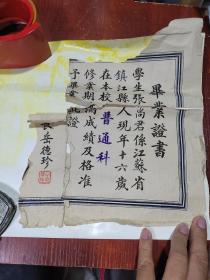 畢業證書
學生張尚君係江蘇省
鎮江縣人現年十六歲
在本校普通科
修業期滿成績及格准
予畢業此證
長岳德珍